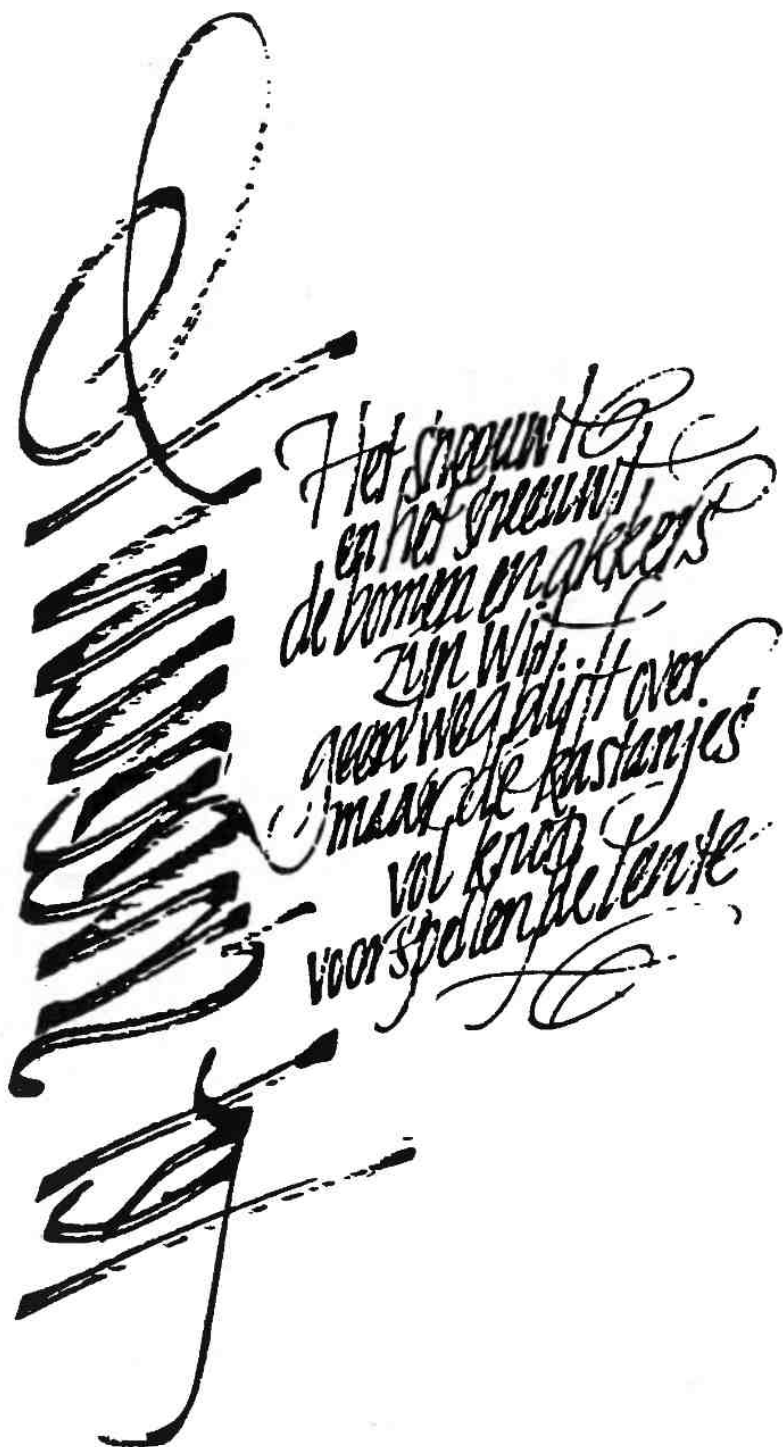 Het sneeuwt
en het sneeuwt
de bomen en akkers
zijn wit
geen weg blijft over
maar de kastanjes
vol knop
voorspellen de lente